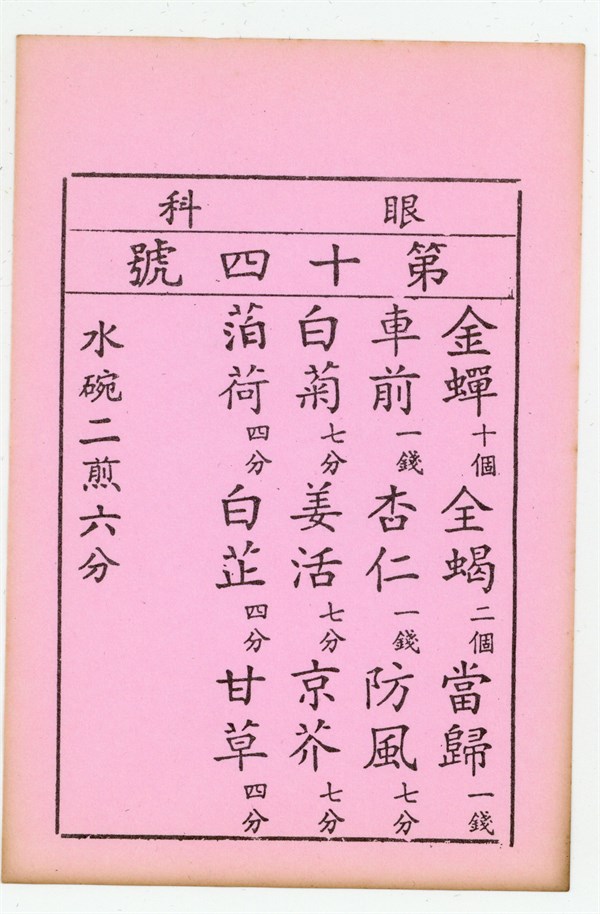 眼科
第十四號
金蟬十個全蝎二個當歸一錢
車前一錢杏仁一錢防風七分
白菊七分姜活七分京芥七分
萡荷四分白芷四分甘草四分
水碗二煎六分